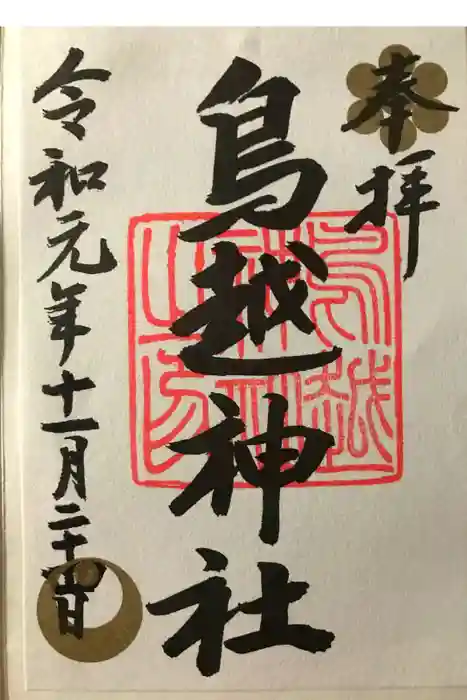 奉拝
鳥越神社
令和元年十一月二十日